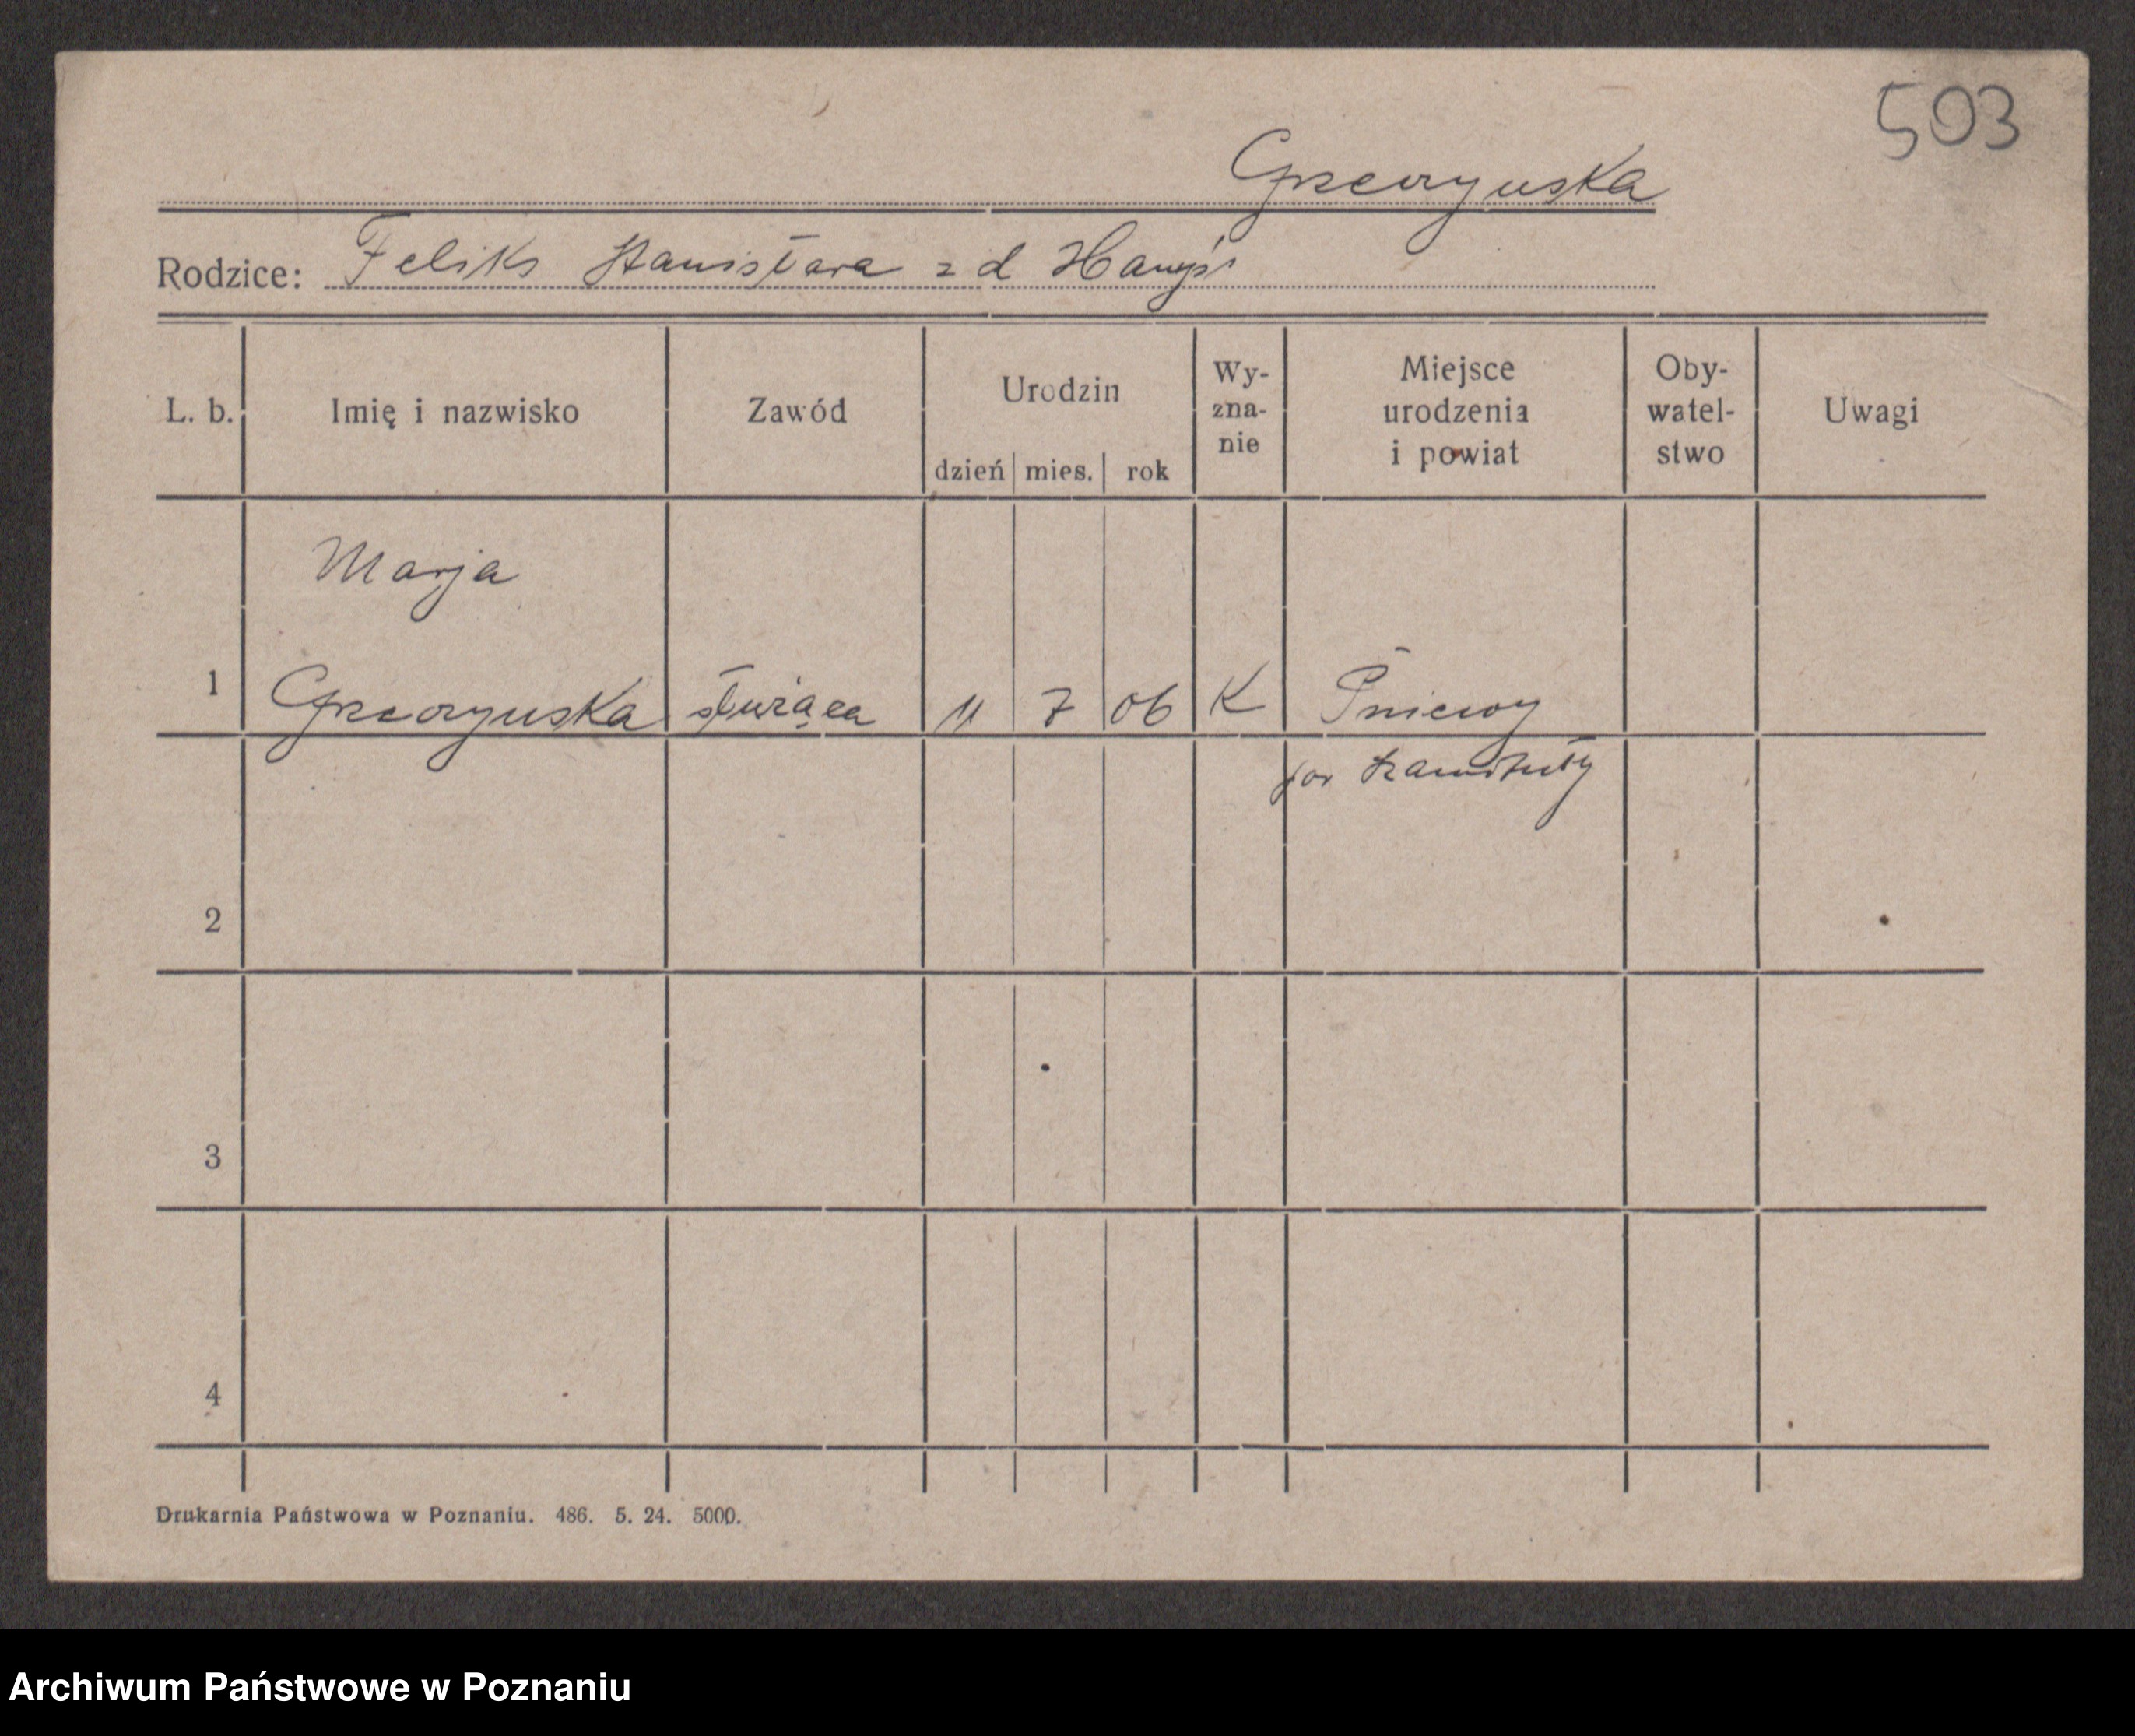 503
Grzeczyuska
Rodzice: Feliks Stanisława z d
L. b. Imię i nazwisko Zawód Urodzin dzień mies. rok Wy-zna-nie Miejsce urodzenia i powiat Oby-watel-stwo Uwagi
Marja
1 Grzeczyuska służąca 11 7 06 K Pniewy
pow Szamotuły
2
3
4
Drukarnia Państwowa w Poznaniu. 486. 5. 24. 5000.
Archiwum Państwowe w Poznaniu